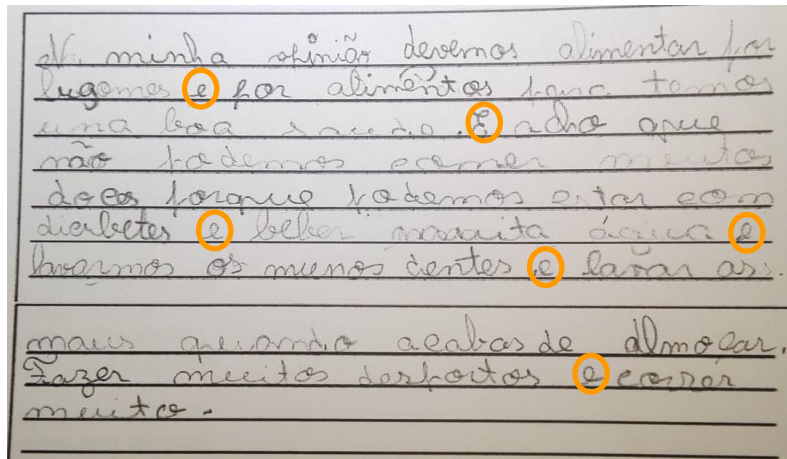 Na minha opinião devemos alimentar por
lugomes e por alimentos para temos
uma boa saudo. E acho que
não podemos comer muitos
doces porque podemos estar com
dierbetes e beber muuita água e
lavarmos os munos dentes e lavar as
maus quando acabas de almoçar.
Fazer muitos desportos e correr
muito.